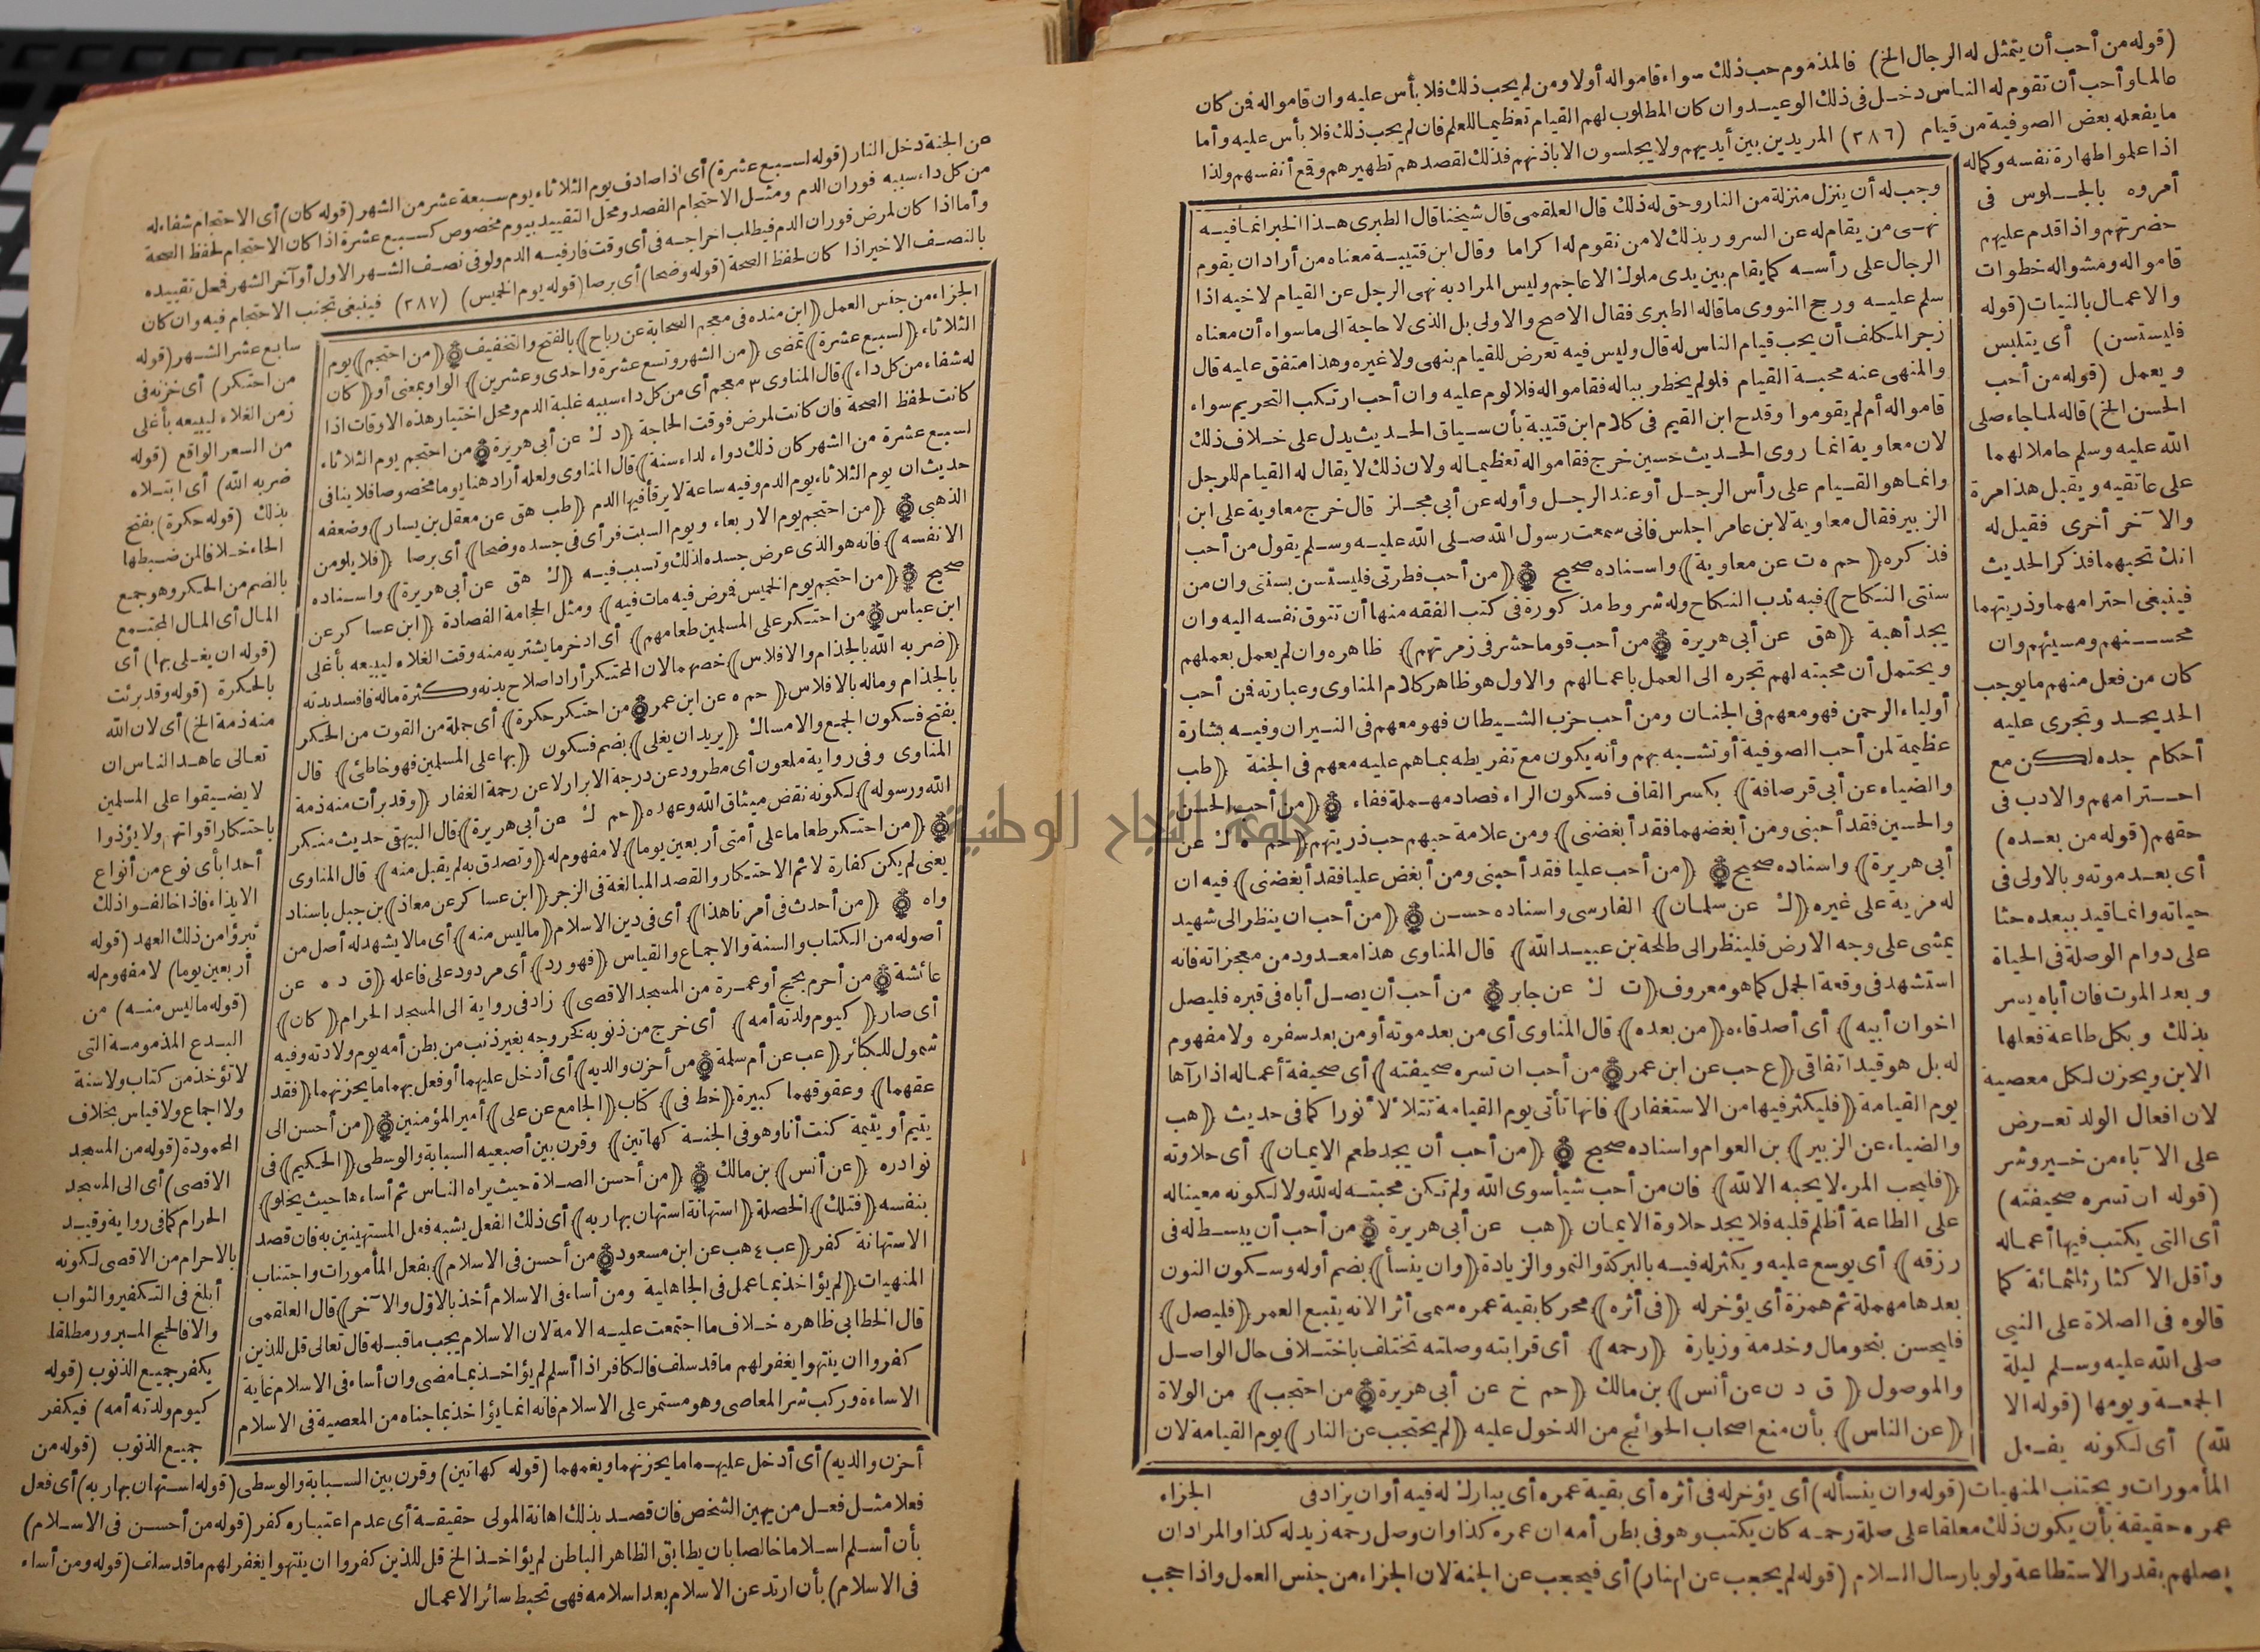 (قوله من أحب أن يتمثل له الرجال الخ) فالمذموم حب ذلك سواء قاموا له أولا ومن لم يحب ذلك فلا بأس عليه وان قاموا له فمن كان
عالما وأحب أن تقوم له الناس دخل فى ذلك الوعيد وان كان المطلوب لهم القيام تعظيما للعلم فان لم يحب ذلك فلا بأس عليه وأما
ما يفعله بعض الصوفية من قيام (٣٨٦) المريدين بين أيديهم ولا يجلسون الا باذنهم فذلك لقصدهم تطهيرهم وقمع أنفسهم ولذا
اذا علموا طهارة نفسه وكماله
أمروه بالجلوس فى
حضرتهم واذا قدم عليهم
قاموا له ومشوا له خطوات
والاعمال بالنيات (قوله
فليستسن) أى يتلبس
ويعمل (قوله من أحب
الحسن الخ) قاله لما جاء صلى
الله عليه وسلم حاملا لهما
على عاتقيه ويقبل هذا مرة
والآخر أخرى فقيل له
انك تحبهما فذكر الحديث
فينبغى احترامهما وذريتهما
محسنهم ومسيئهم وان
كان من فعل منهم ما يوجب
الحد يحد وتجرى عليه
أحكام جده لكن مع
احترامهم والادب فى
حقهم (قوله من بعده)
أى بعد موته وبالاولى فى
حياته وانما قيد ببعده حثا
على دوام الوصلة فى الحياة
وبعد الموت فان أباه يسر
بذلك وبكل طاعة فعلها
الابن ويحزن لكل معصية
لان افعال الولد تعرض
على الآباء من خير وشر
(قوله ان تسره صحيفته)
أى التى يكتب فيها أعماله
وأقل الاكثار ثلثمائة كما
قالوه فى الصلاة على النبى
صلى الله عليه وسلم ليلة
الجمعة ويومها (قوله الا
لله) أى لكونه يفعل
وجب له أن ينزل منزلة من النار وحق له ذلك قال العلقمى قال شيخنا قال الطبرى هذا الخبر انما فيه
نهى من يقام له عن السرور بذلك لا من نقوم له اكراما وقال ابن قتيبة معناه من أراد ان يقوم
الرجال على رأسه كما يقام بين يدى ملوك الاعاجم وليس المراد به نهى الرجل عن القيام لاخيه اذا
سلم عليه ورجح النووى ما قاله الطبرى فقال الاصح والاولى بل الذى لا حاجة الى ما سواه أن معناه
زجر المكلف أن يحب قيام الناس له قال وليس فيه تعرض للقيام بنهى ولا غيره وهذا متفق عليه قال
والمنهى عنه محبة القيام فلو لم يخطر بباله فقاموا له فلا لوم عليه وان أحب ارتكب التحريم سواء
قاموا له أم لم يقوموا وقدح ابن القيم فى كلام ابن قتيبة بأن سياق الحديث يدل على خلاف ذلك
لان معاوية انما روى الحديث حسين خرج فقاموا له تعظيما له ولان ذلك لا يقال له القيام للرجل
وانما هو القيام على رأس الرجل أو عند الرجل وأوله عن أبى مجلز قال خرج معاوية على ابن
الزبير فقال معاوية لابن عامر اجلس فانى سمعت رسول الله صلى الله عليه وسلم يقول من أحب
فذكره (حم ه ت عن معاوية) واسناده صحيح (من أحب فطرتى فليستسن بسنتى وان من
سنتى النكاح) فيه ندب النكاح وله شروط مذكورة فى كتب الفقه منها أن تتوق نفسه اليه وان
يجد أهبة (هق عن أبى هريرة من أحب قوما حشر فى زمرتهم) ظاهره وان لم يعمل بعملهم
ويحتمل أن محبته لهم تجره الى العمل باعمالهم والاول هو ظاهر كلام المناوى وعبارته فمن أحب
أولياء الرحمن فهو معهم فى الجنان ومن أحب حزب الشيطان فهو معهم فى النيران وفيه بشارة
عظيمة لمن أحب الصوفية أو تشبه بهم وأنه يكون مع تفريطه بما هم عليه معهم فى الجنة (طب
والضياء عن أبى قرصافة) بكسر القاف فسكون الراء فصاد مهملة ففاء (من أحب الحسن
والحسين فقد أحبنى ومن أبغضهما فقد أبغضنى) ومن علامة حبهم حب ذريتهم (حم ه ك عن
أبى هريرة) واسناده صحيح (من أحب عليا فقد أحبنى ومن أبغض عليا فقد أبغضنى) فيه ان
له مزية على غيره (ك عن سلمان) الفارسى واسناده حسن (من أحب ان ينظر الى شهيد
يمشى على وجه الارض فلينظر الى طلحة بن عبيد الله) قال المناوى هذا معدود من معجزاته فانه
استشهد فى وقعة الجمل كما هو معروف (ت ك عن جابر من أحب أن يصل أباه فى قبره فليصل
اخوان أبيه) أى أصدقاءه (من بعده) قال المناوى أى من بعد موته أو من بعد سفره ولا مفهوم
له بل هو قيد اتفاقى (ع حب عن ابن عمر من أحب ان تسره صحيفته) أى صحيفة أعماله اذا رآها
يوم القيامة (فليكثر فيها من الاستغفار) فانها تأتى يوم القيامة تتلألأ نورا كما فى حديث (هب
والضياء عن الزبير) بن العوام واسناده صحيح (من أحب أن يجد طعم الايمان) أى حلاوته
(فليحب المرء لا يحبه الا لله) فان من أحب شيأ سوى الله ولم تكن محبته له لله ولا لكونه معينا له
على الطاعة أظلم قلبه فلا يجد حلاوة الايمان (هب عن أبى هريرة من أحب أن يبسط له فى
رزقه) أى يوسع عليه ويكثر له فيه بالبركة والنمو والزيادة (وان ينسأ) بضم أوله وسكون النون
بعدها مهملة ثم همزة أى يؤخر له (فى أثره) محركا بقية عمره سمى أثرا لانه يتبع العمر (فليصل)
فليحسن بنحو مال وخدمة وزيارة (رحمه) أى قرابته وصلته تختلف باختلاف حال الواصل
والموصول (ق د ن عن أنس) بن مالك (حم خ عن أبى هريرة من احتجب) من الولاة
(عن الناس) بأن منع اصحاب الحوائج من الدخول عليه (لم يحتجب عن النار) يوم القيامة لان
الجزاء
المأمورات ويجتنب المنهيات (قوله وان ينسأ له) أى يؤخر له فى أثره أى بقية عمره أى يبارك له فيه أو ان يزاد فى
عمره حقيقة بأن يكون ذلك معلقا على صلة رحمه كان يكتب وهو فى بطن أمه ان عمره كذا وان وصل رحمه زيد له كذا والمراد ان
يصلهم بقدر الاستطاعة ولو بارسال السلام (قوله لم يحجب عن النار) أى فيحجب عن الجنة لان الجزاء من جنس العمل واذا حجب
عن الجنة دخل النار (قوله لسبع عشرة) أى اذا صادف يوم الثلاثاء يوم سبعة عشر من الشهر (قوله كان) أى الاحتجام شفاء له
من كل داء سببه فوران الدم ومثل الاحتجام الفصد ومحل التقييد بيوم مخصوص كسبع عشرة اذا كان الاحتجام لحفظ الصحة
وأما اذا كان لمرض فوران الدم فيطلب اخراجه فى أى وقت فار فيه الدم ولو فى نصف الشهر الاول أو آخر الشهر فمحل تقييده
بالنصف الاخير اذا كان لحفظ الصحة (قوله وضحا) أى برصا (قوله يوم الخميس) (٣٨٧) فينبغى تجنب الاحتجام فيه وان كان
سابع عشر الشهر (قوله
من احتكر) أى خزنه فى
زمن الغلاء ليبيعه بأغلى
من السعر الواقع (قوله
ضربه الله) أى ابتلاه
بذلك (قوله حكرة) بفتح
الحاء خلافا لمن ضبطها
بالضم من الحكر وهو جمع
المال أى المال المجتمع
(قوله ان يغلى بها) أى
بالحكرة (قوله وقد برئت
منه ذمة الخ) أى لان الله
تعالى عاهد الناس ان
لا يضيقوا على المسلمين
باحتكار اقواتهم ولا يؤذوا
أحدا بأى نوع من أنواع
الايذاء فاذا خالفوا ذلك
تبرؤا من ذلك العهد (قوله
أربعين يوما) لا مفهوم له
(قوله ما ليس منه) من
البدع المذمومة التى
لا تؤخذ من كتاب ولا سنة
ولا اجماع ولا قياس بخلاف
المحمودة (قوله من المسجد
الاقصى) أى الى المسجد
الحرام كما فى رواية وقيد
بالاحرام من الاقصى لكونه
أبلغ فى التكفير والثواب
والا فالحج المبرور مطلقا
يكفر جميع الذنوب (قوله
كيوم ولدته أمه) فيكفر
جميع الذنوب (قوله من
الجزاء من جنس العمل (ابن منده فى معجم الصحابة عن رباح) بالفتح والتخفيف (من احتجم) يوم
الثلاثاء (لسبع عشرة) تمضى (من الشهر وتسع عشرة واحدى وعشرين) الواو بمعنى أو (كان
له شفاء من كل داء) قال المناوى ٣ معجم أى من كل داء سببه غلبة الدم ومحل اختيار هذه الاوقات اذا
كانت لحفظ الصحة فان كانت لمرض فوقت الحاجة (د ك عن أبى هريرة من احتجم يوم الثلاثاء
لسبع عشرة من الشهر كان ذلك دواء لداء سنة) قال المناوى ولعله أراد هنا يوما مخصوصا فلا ينافى
حديث ان يوم الثلاثاء يوم الدم وفيه ساعة لا يرقأ فيها الدم (طب هق عن معقل بن يسار) وضعفه
الذهبى (من احتجم يوم الاربعاء ويوم السبت فرأى فى جسده وضحا) أى برصا (فلا يلومن
الا نفسه) فانه هو الذى عرض جسده لذلك وتسبب فيه (ك هق عن أبى هريرة) واسناده
صحيح (من احتجم يوم الخميس فمرض فيه مات فيه) ومثل الحجامة الفصادة (ابن عساكر عن
ابن عباس من احتكر على المسلمين طعامهم) أى ادخر ما يشتريه منه وقت الغلاء ليبيعه بأغلى
(ضربه الله بالجذام والافلاس) خصهما لان المحتكر أراد اصلاح بدنه وكثرة ماله فافسد بدنه
بالجذام وماله بالافلاس (حم ه عن ابن عمر من احتكر حكرة) أى جملة من القوت من الحكر
بفتح فسكون الجمع والامساك (يريد ان يغلى) بضم فسكون (بها على المسلمين فهو خاطئ) قال
المناوى وفى رواية ملعون أى مطرود عن درجة الابرار لا عن رحمة الغفار (وقد برأت منه ذمة
الله ورسوله) لكونه نقض ميثاق الله وعهده (حم ك عن أبى هريرة) قال البيهقى حديث منكر
(من احتكر طعاما على أمتى أربعين يوما) لا مفهوم له (وتصدق به لم يقبل منه) قال المناوى
يعنى لم يكن كفارة لاثم الاحتكار والقصد المبالغة فى الزجر (ابن عساكر عن معاذ) بن جبل باسناد
واه (من أحدث فى أمرنا هذا) أى فى دين الاسلام (ما ليس منه) أى ما لا يشهد له أصل من
أصوله من الكتاب والسنة والاجماع والقياس (فهو رد) أى مردود على فاعله (ق د ه عن
عائشة من أحرم بحج أو عمرة من المسجد الاقصى) زاد فى رواية الى المسجد الحرام (كان)
أى صار (كيوم ولدته أمه) أى خرج من ذنوبه كخروجه بغير ذنب من بطن أمه يوم ولادته وفيه
شمول للكبائر (عب عن أم سلمة من أحزن والديه) أى أدخل عليهما أو فعل بهما ما يحزنهما (فقد
عقهما) وعقوقهما كبيرة (خط فى) كتاب (الجامع عن على) أمير المؤمنين (من أحسن الى
يتيم أو يتيمة كنت أنا وهو فى الجنة كهاتين) وقرن بين أصبعيه السبابة والوسطى (الحكيم) فى
نوادره (عن أنس) بن مالك (من أحسن الصلاة حيث يراه الناس ثم أساءها حيث يخلو)
بنفسه (فتلك) الخصلة (استهانة استهان بها ربه) أى ذلك الفعل يشبه فعل المستهينين به فان قصد
الاستهانة كفر (عب ٤ هب عن ابن مسعود من أحسن فى الاسلام) بفعل المأمورات واجتناب
المنهيات (لم يؤاخذ بما عمل فى الجاهلية ومن أساء فى الاسلام أخذ بالاول والآخر) قال العلقمى
قال الخطابى ظاهره خلاف ما اجتمعت عليه الامة لان الاسلام يجب ما قبله قال تعالى قل للذين
كفروا ان ينتهوا يغفر لهم ما قد سلف فالكافر اذا أسلم لم يؤاخذ بما مضى وان أساء فى الاسلام غاية
الاساءة وركب شر المعاصى وهو مستمر على الاسلام فانه انما يؤاخذ بما جناه من المعصية فى الاسلام
أحزن والديه) أى أدخل عليهما ما يحزنهما ويغمهما (قوله كهاتين) وقرن بين السبابة والوسطى (قوله استهان بها ربه) أى فعل
فعلا مثل فعل من يهين الشخص فان قصد بذلك اهانة المولى حقيقة أى عدم اعتباره كفر (قوله من أحسن فى الاسلام)
بأن أسلم اسلاما خالصا بان يطابق الظاهر الباطن لم يؤاخذ الخ قل للذين كفروا ان ينتهوا يغفر لهم ما قد سلف (قوله ومن أساء
فى الاسلام) بأن ارتد عن الاسلام بعد اسلامه فهى تحبط سائر الاعمال
جامعة النجاح الوطنية